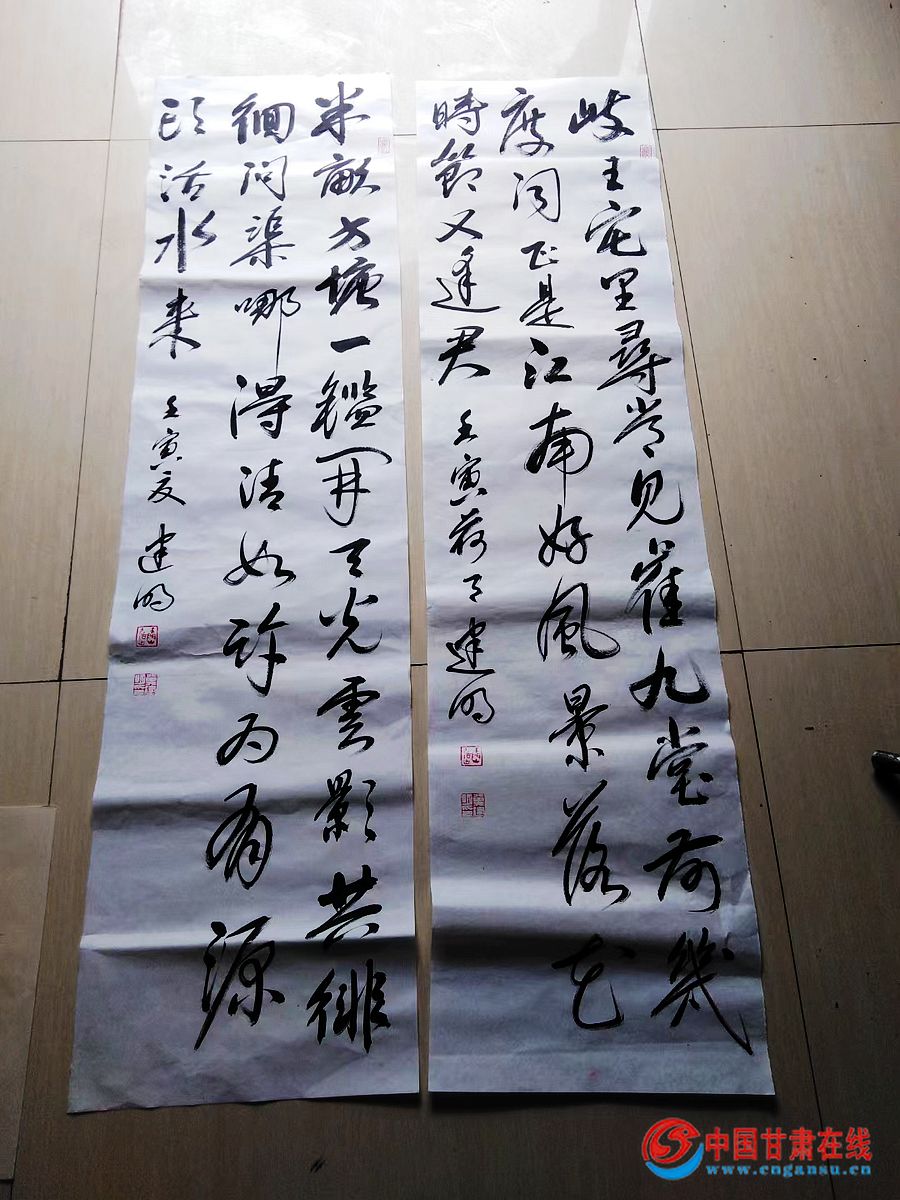 岐王宅里尋常見崔九堂前幾
度闻正是江南好風景落花
時節又逢君 壬寅荷月建明
半畝方塘一鑑開天光雲影共徘
徊问渠哪得清如许为有源
头活水来 壬寅夏建明
中国甘肃在线
www.cngansu.cn